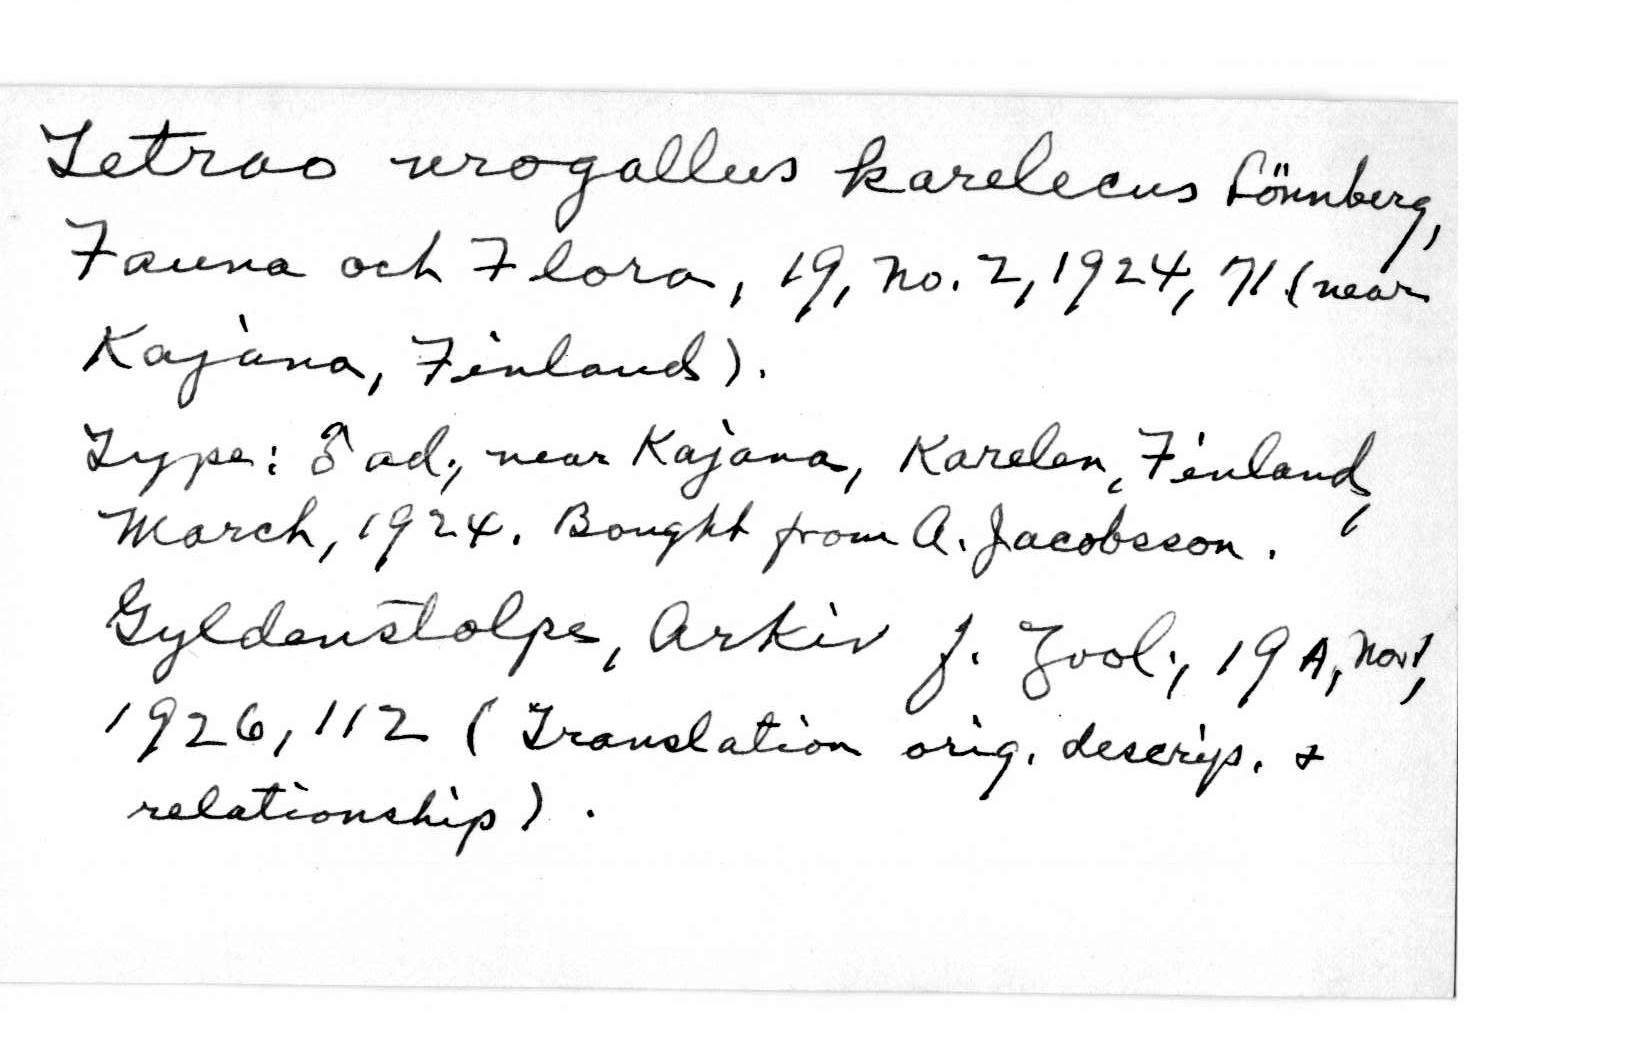 Tetrao urogallus karelecus Lönnberg,
Fauna och Flora, 19, No. 2, 1924, 71 (near
Kajana, Finland).
Type: ♂ ad., near Kajana, Karelen, Finland,
March, 1924. Bought from A. Jacobsson.
Gyldenstolpe, Arkiv f. Zool., 19 A, No. 1,
1926, 112 (Translation orig. descrip. &
relationship).